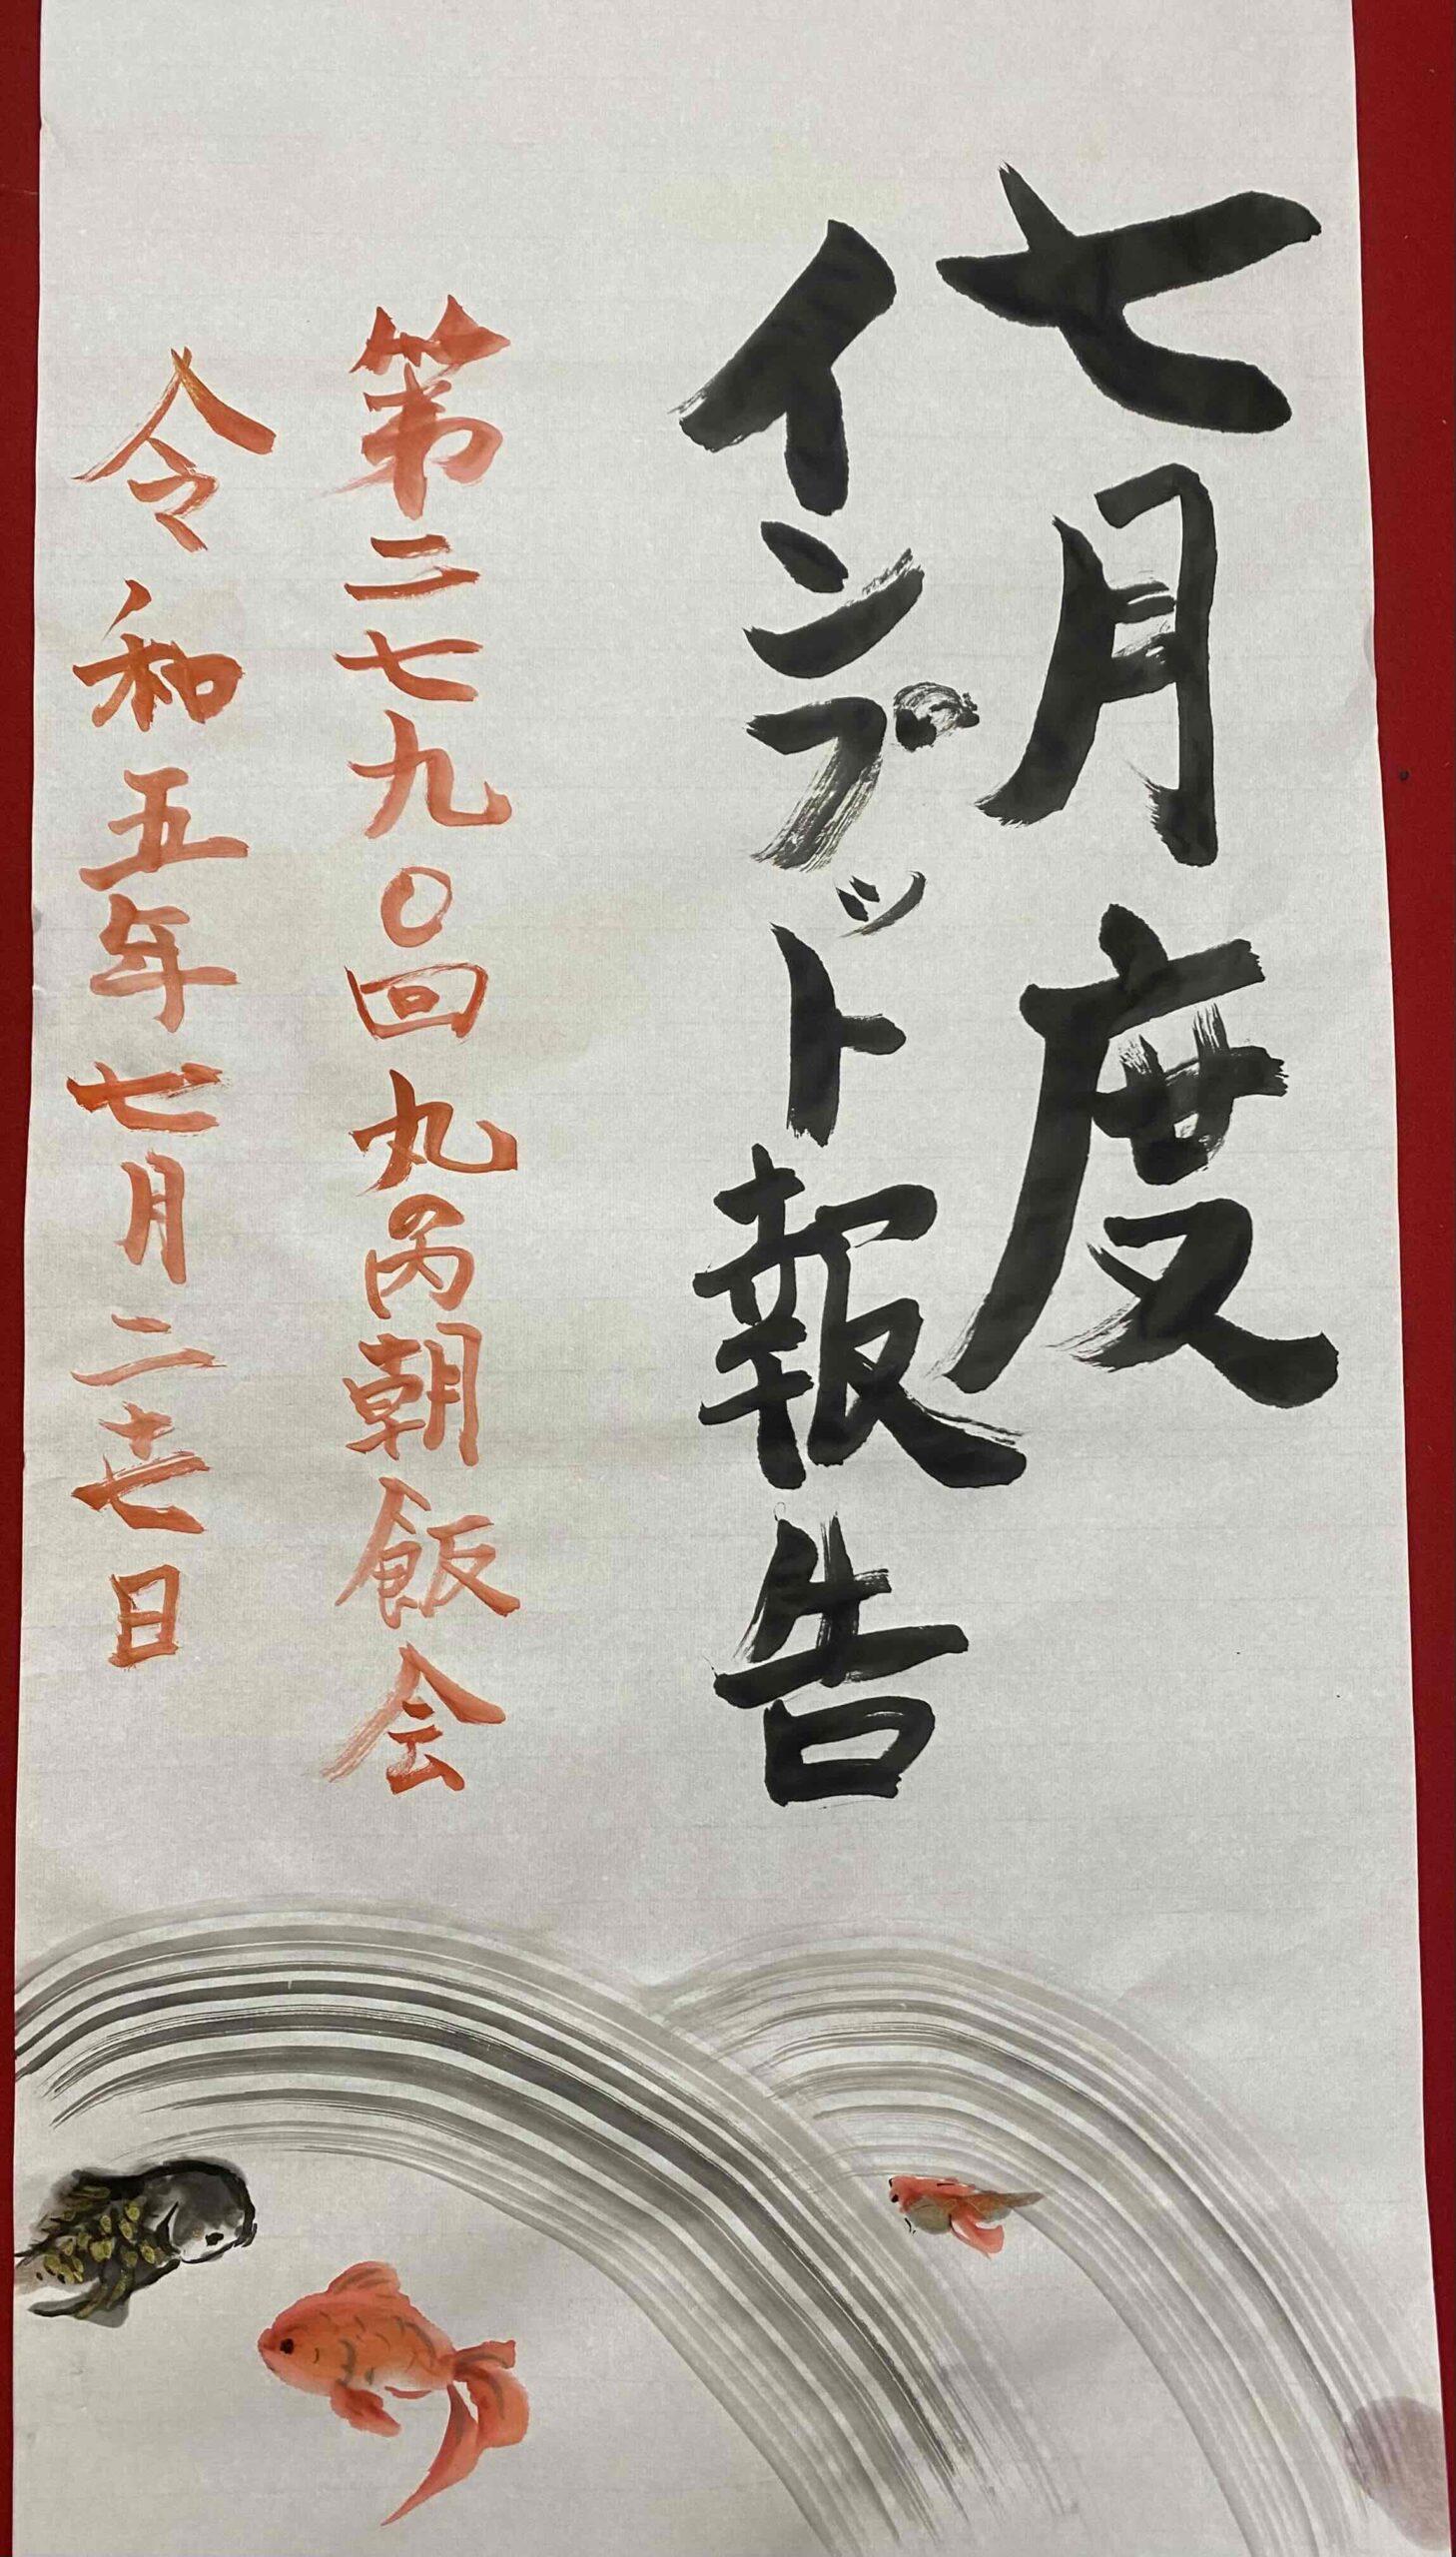 七月度
インプット報告
第二七九〇回丸の内朝飯会
令和五年七月二十七日